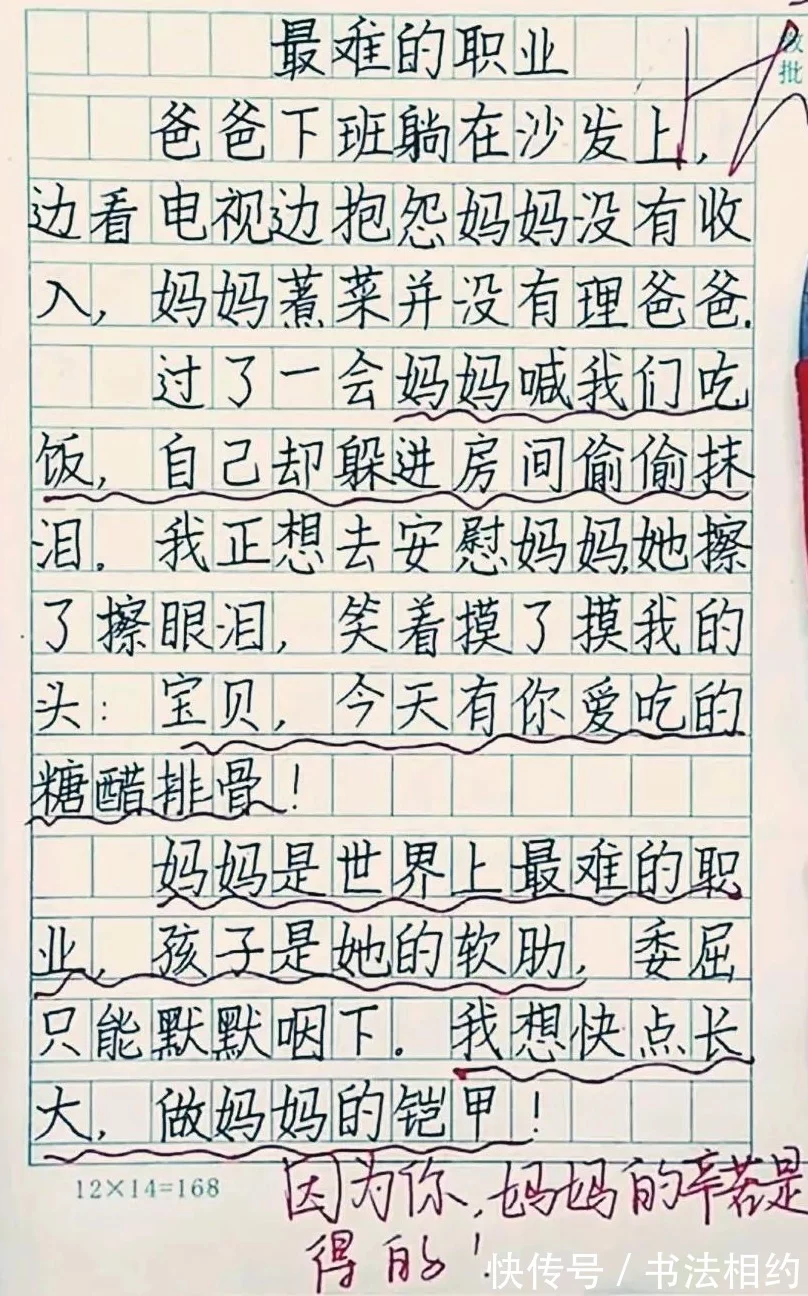 最难的职业
教
批
爸爸下班躺在沙发上,
边看电视边抱怨妈妈没有收
入,妈妈煮菜并没有理爸爸.
过了一会妈妈喊我们吃
饭,自己却躲进房间偷偷抹
泪.我正想去安慰妈妈,她擦
了擦眼泪,笑着摸了摸我的
头:宝贝,今天有你爱吃的
糖醋排骨!
妈妈是世界上最难的职
业,孩子是她的软肋,委屈
只能默默咽下。我想快点长
大,做妈妈的铠甲!
12×14=168
因为你,妈妈的辛苦是
得的!
快传号/书法相约